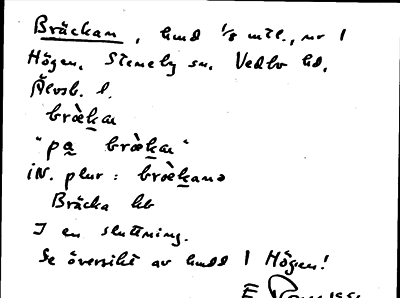 Bräckan, hmd 1/8 mtl., nr 1
Högen, Steneby sn, Vedbo hd,
Älvsb. l.
bràekan
"pa bràekan"
iN. plur: bràekana
Bräcka hb
I en sluttning.
Se översikt av hmd 1 Högen!
E